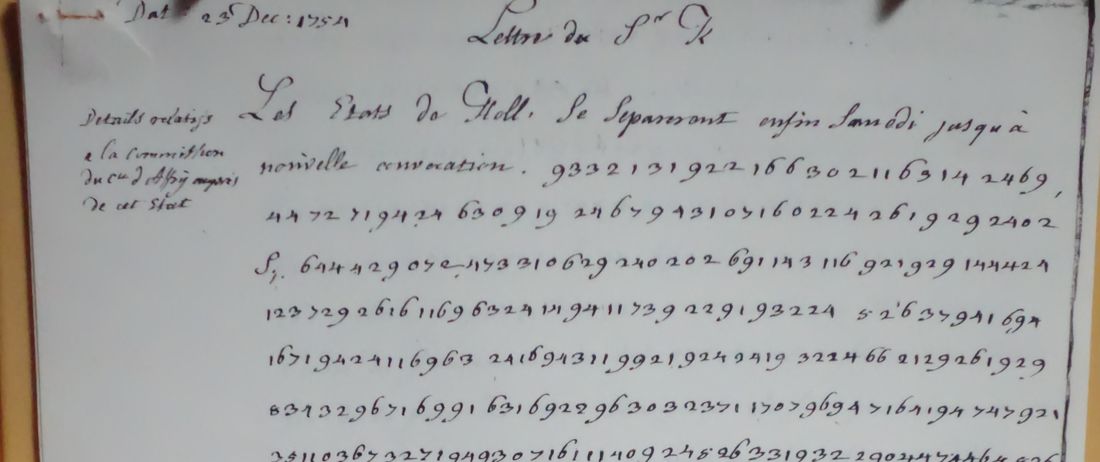 Dat 23 Dec: 1754
Lettre du Sr K
Details relatifs
a la Commission
du Cte d'Affry aupres
de cet Etat
Les Etats de Holl. se separeront enfin Samedi jusqu'à
nouvelle convocation. 9332131922166302116314 2469,
44727194 24 630919 246794310716022426192 92402
S; 694429072 4733106292402026911431169219291 44424
12372926161169632414194117392291932 24 526379 41694
1671942411696 3 24169431199219249419 322466212926 1929
834329671699163169229630323711707969471641947 47921